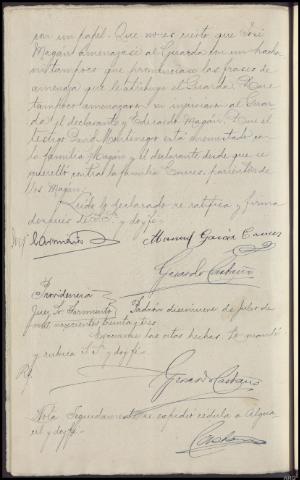 con un papel. Que no es cierto que José
Magan amenazase al Guarda con un hacha
ni tampoco que pronunciara las frases de
amenaza que le atribuye el Guarda. Que
tampoco amenazaron ni injuriaron al Guar
da el declarante y Edelmiro Magan. Que el
testigo David Montenegro está enemistado con
la familia Magan y el declarante desde que se
querelló contra la familia parientes de
los Magan.
Leida lo declarado se ratifica y firma
después de S.Sª y doy fe.
Sarmiento Manuel García
Gerardo
Providencia
Juez Sr Sarmiento Padrón diecinueve de Julio de
mil novecientos treinta y dos.
Evacuense las citas hechas. Lo mandó
y rubrica S.Sª y doy fe.
Gerardo
Nota Seguidamente se expidió cédula a Algua
cil y doy fe.